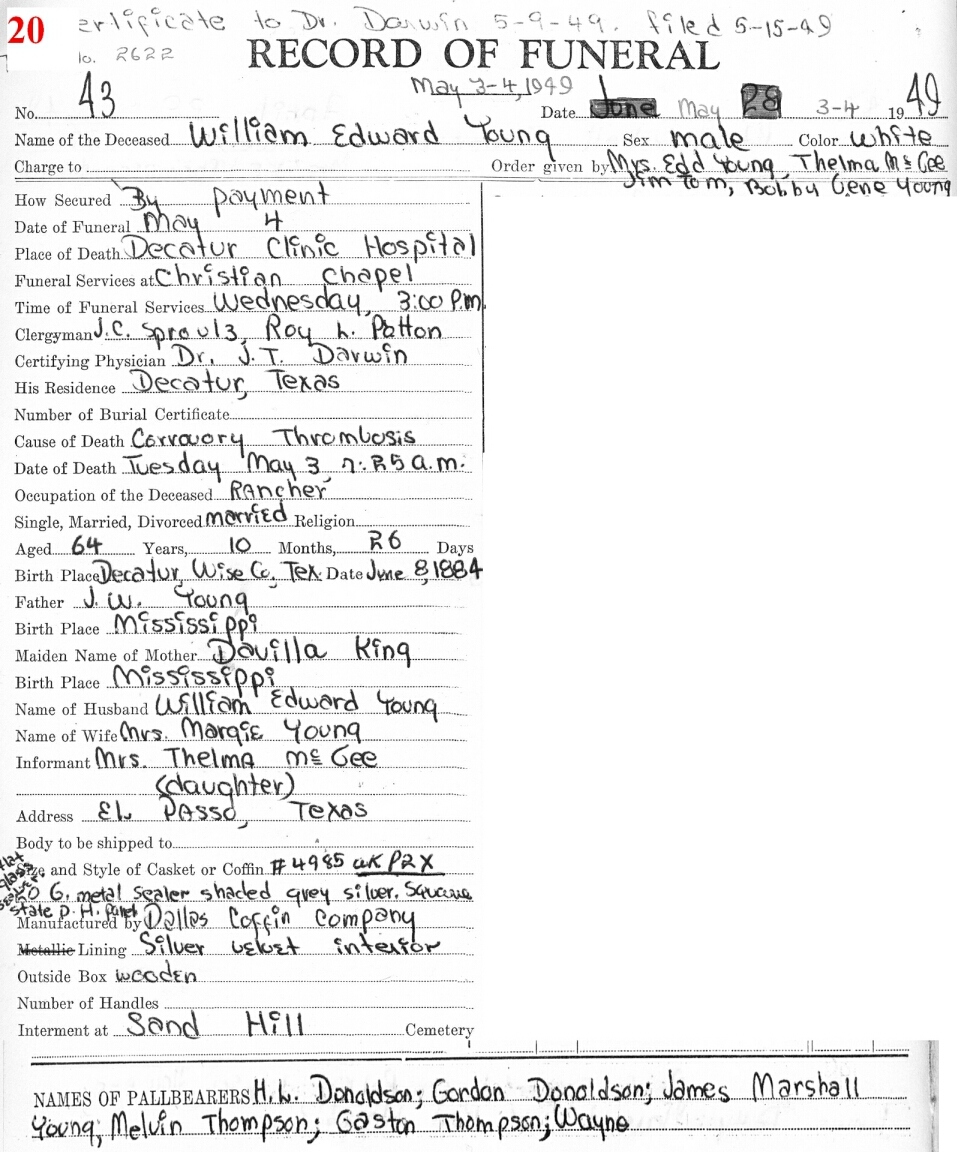 20 ertificate to Dr. Darwin 5-9-49. filed 5-15-49
No. 2622
RECORD OF FUNERAL
May 3-4, 1949
No. 43 Date June May 28 3-4 1949
Name of the Deceased William Edward Young Sex male Color White
Charge to Order given by Mrs. Edd Young, Thelma McGee
Jim Tom, Bobby Gene Young
How Secured By payment
Date of Funeral May 4
Place of Death Decatur Clinic Hospital
Funeral Services at Christian Chapel
Time of Funeral Services Wednesday, 3:00 P.M.
Clergyman J.C. Sproulz, Roy L. Patton
Certifying Physician Dr. J.T. Darwin
His Residence Decatur, Texas
Number of Burial Certificate
Cause of Death Corrouory Thrombosis
Date of Death Tuesday May 3 7:25 a.m.
Occupation of the Deceased Rancher
Single, Married, Divorced married Religion
Aged 64 Years, 10 Months, 26 Days
Birth Place Decatur, Wise Co, Tex. Date June 8, 1884
Father J. W. Young
Birth Place Mississippi
Maiden Name of Mother Davilla King
Birth Place Mississippi
Name of Husband William Edward Young
Name of Wife Mrs. Margie Young
Informant Mrs. Thelma McGee
(daughter)
Address EL Passo, Texas
Body to be shipped to
Size and Style of Casket or Coffin #4985 P2X
flat glass sealer
20 G. metal sealer shaded grey silver. Square
state D. H. Panel
Manufactured by Dallas Coffin Company
Metallic Lining Silver velvet interior
Outside Box wooden
Number of Handles
Interment at Sand Hill Cemetery
NAMES OF PALLBEARERS H.L. Donaldson; Gordon Donaldson; James Marshall
Young; Melvin Thompson; Gaston Thompson; Wayne